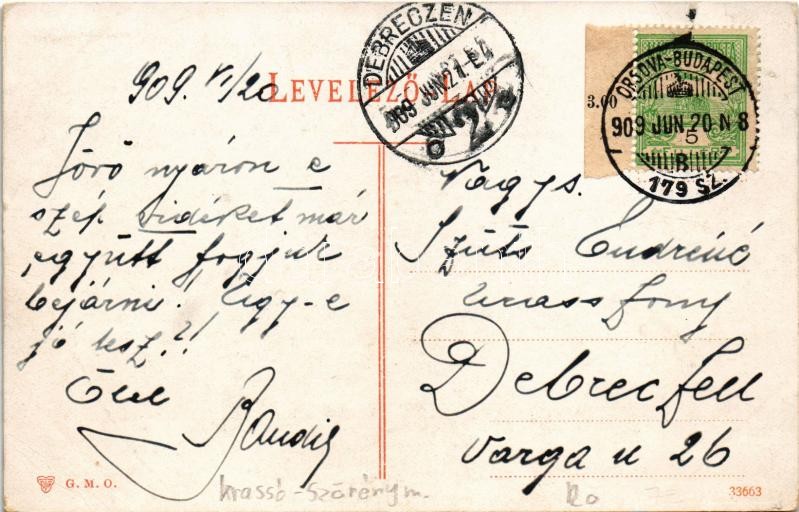 909. VI/20
LEVELEZŐ LAP
DEBRECZEN
909 JUN 21
3.00
ORSOVA-BUDAPEST
909 JUN. 20 N 8
B
179 SZ.
5
Jövő nyáron e
szép vidéket már
együtt fogjuk
bejárni! Ugy-e
jó lesz?!
Ölel
Bandid
Nagys.
Szüts Endréné
urasszony
Debreczen
Varga u 26
G. M. O.
Krassó-Szörény m.
Ro
33663